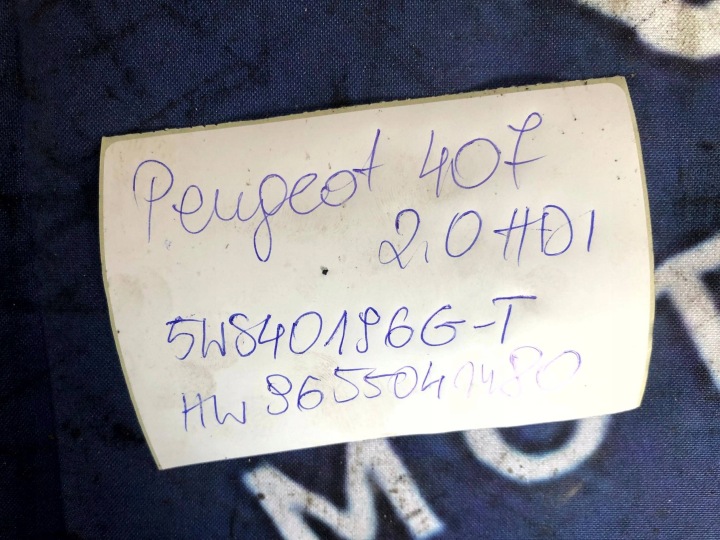 Peugeot 407
2.0 HDI
5WS40196G-T
HW 9655041480
MOT